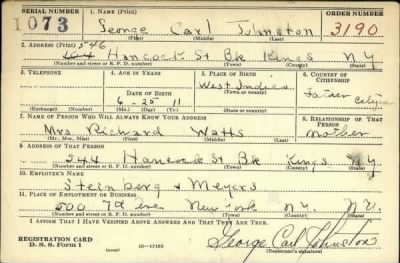 SERIAL NUMBER
1. NAME (Print)
ORDER NUMBER
1073
George Carl Johnston
3190
(First) (Middle) (Last)
2. ADDRESS (Print) 546
Hancock St Bk Kings NY
(Number and street or R. F. D. number) (Town) (County) (State)
3. TELEPHONE
4. AGE IN YEARS
5. PLACE OF BIRTH
6. COUNTRY OF CITIZENSHIP
West Indies
DATE OF BIRTH
(Town or county)
Father
6-25-11
(Exchange) (Number)
(Mo.) (Day) (Yr.)
(State or country)
7. NAME OF PERSON WHO WILL ALWAYS KNOW YOUR ADDRESS
8. RELATIONSHIP OF THAT PERSON
Mrs Richard Watts
mother
(Mr., Mrs., Miss) (First) (Middle) (Last)
9. ADDRESS OF THAT PERSON
544 Hancock St Bk Kings NY
(Number and street or R. F. D. number) (Town) (County) (State)
10. EMPLOYER'S NAME
Steinberg & Meyers
11. PLACE OF EMPLOYMENT OR BUSINESS
500 7th ave New York N.Y. N.Y.
(Number and street or R. F. D. number) (Town) (County) (State)
I AFFIRM THAT I HAVE VERIFIED ABOVE ANSWERS AND THAT THEY ARE TRUE.
REGISTRATION CARD
D. S. S. Form 1
16-17105
George Carl Johnston
(Registrant's signature)